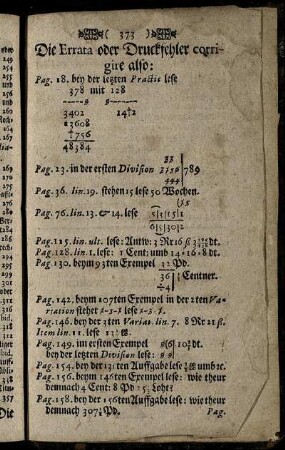 ( 373 )
Die Errata oder Druckfehler corri-
gire also:
Pag. 18. bey der letzten Practic lese
378 mit 128
3402 14†2
13608
†756
48384
Pag. 23. in der ersten Division 789
Pag. 36. lin. 19. stehen 15 lese 50 Wochen.
Pag. 76. lin. 13. & 14. lese 5|1|5|1
6|5|30|2
Pag. 115. lin. ult. lese: Antw: 3 Rt 16 ß dt.
Pag. 128. lin. 1. lese: 1 Cent: umb 14 ‧ 16 ‧ 8 dt.
Pag. 130. beym 93ten Exempel 32 Pd.
36 Centner.
÷4
Pag. 142. beym 107ten Exempel in der 2ten Va-
riation stehet 1-3-1 lese 1-3.
Pag. 146. bey der 3ten Variat. lin. 7. 8 Rt 21 ß.
Item lin. 11. lese
Pag. 149. im ersten Exempel dt.
bey der letzten Division lese:
Pag. 154. bey der 131ten Auffgabe lese umb
Pag. 156. beym 146ten Exempel lese: wie theur
demnach 4 Cent: 8 Pd 15 Loht?
Pag. 158. bey der 156ten Auffgabe lese: wie theur
demnach 307 Pd.
Pag.